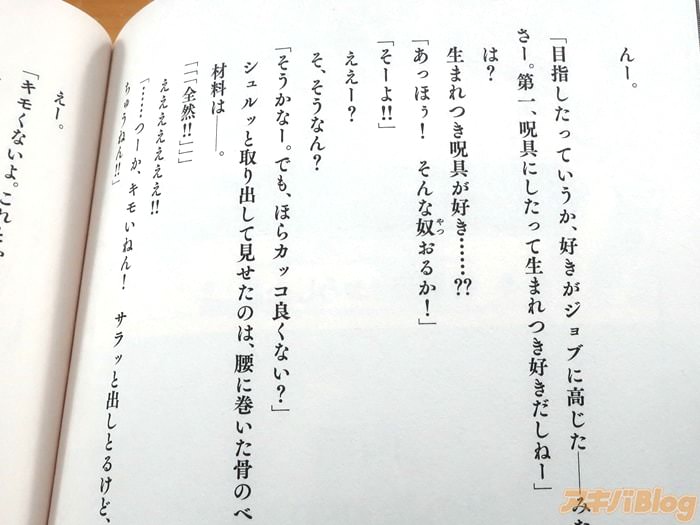 んー。
「目指したっていうか、好きがジョブに高じた――みた
さー。第一、呪具にしたって生まれつき好きだしねー」
は？
生まれつき呪具が好き……??
「あっほぅ！　そんな奴おるか！」
やつ
「そーよ!!」
ええー？
そ、そうなん？
「そうかなー。でも、ほらカッコ良くない？」
シュルッと取り出して見せたのは、腰に巻いた骨のベ
材料は――。
「「「全然!!」」」
ええええええええ!!
「……つーか、キモいねん！　サラッと出しとるけど、
ちゅうねん!!」
えー。
「キモくないよ。これ
アキバBlog